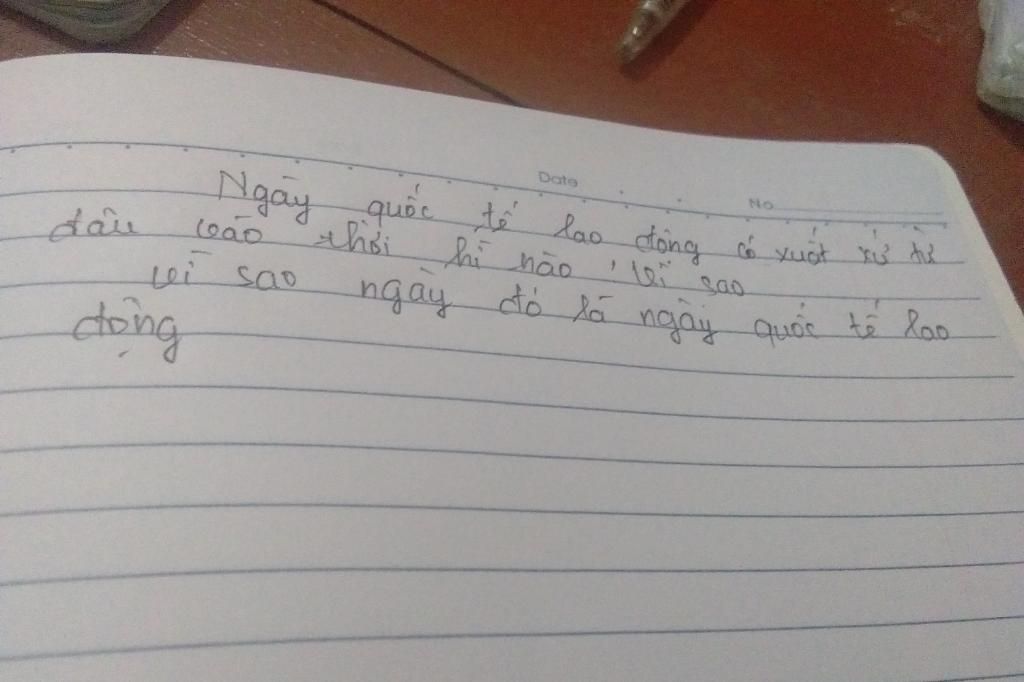 Date
No
Ngày quốc tế lao động có xuất xứ từ
đâu vào thời kì nào, vì sao
vì sao ngày đó là ngày quốc tế lao
động